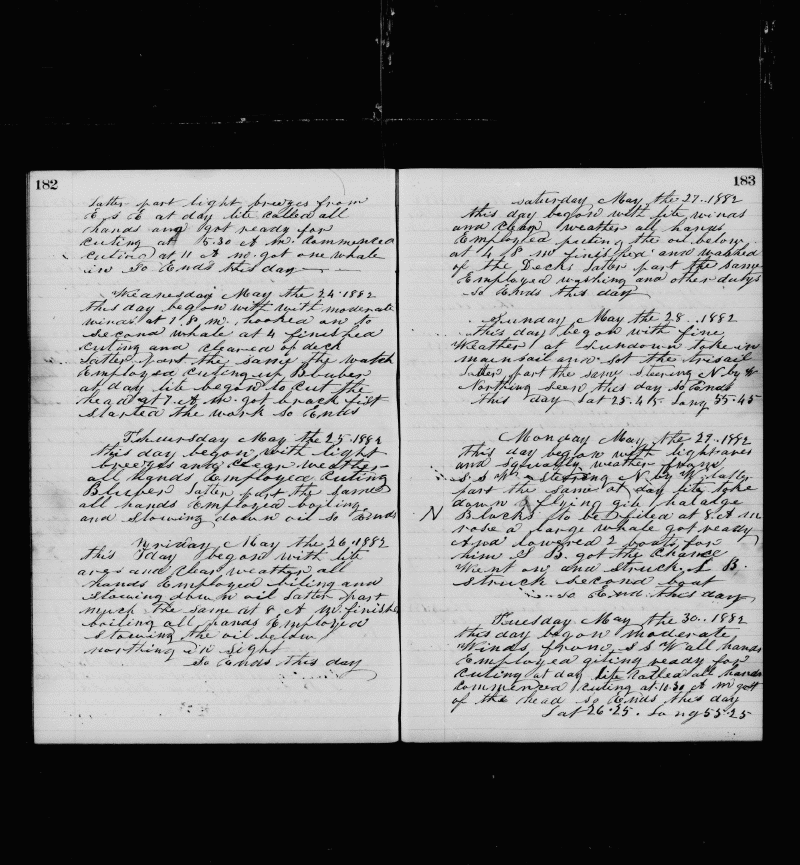 182
latter part light breezes from
E S E at day lite called all
hands and got ready for
cuting at 5.30 A M. Commenced
cuting at 11 A m. got one whale
in So Ends this day
Wednesday May the 24. 1882
this day begon with with moderate
winds at 1 P, m, hooked on to
second whale at 4 finished
cuting and cleared of deck
latter part the same the watch
Employed cuting up Bluber
at day lite began to cut the
head at 7 A. M. got brack fist
started the work so Ends
Thuursday May the 25. 1882
this day begon with light
breezes and clear weather
all hands Employed cuting
Bluber latter part the same
all hands Employed boiling
and stowing down oil so Ends
Friday May the 26. 1882
this day begon with lite
ares and clear weather all
hands Employed biling and
stowing down oil latter part
much the same at 8 A M. finished
boiling all hands Employed
stowing the oil below
northing in sight
So Ends this day
183
Saturday May the 27. 1882
this day begon with lite winds
and clear weather all hands
Employed puting the oil below
at 4 P m finished and washed
of the Deck latter part the same
Employed washing and other dutys
So Ends this day
Sunday May the 28. 1882
this day begon with fine
weather at sundown toke in
mainsail and sot the trisail
latter part the same steering N by W
Northing seen this day So Ends
this day Lat 25.45 Long 55.45
Monday May the 29. 1882
this day begon with light ares
and squaly weather from
S S W steering N by W latter
part the same at day lite toke
down flying gib halage
N Blocks to be fited at 8 A m
rose a large whale got ready
And lowered 2 boats for
him S B. got the chance
Went on and struck. L B.
struck second boat
so End this day
Tuesday May the 30. 1882
this day begon moderate
Winds from S S W all hands
Employed giting ready for
cuting at day lite called all hands
commenced cuting at 10.30 A m got
of the head so Ends this day
Lat 26.25. Long 55.25